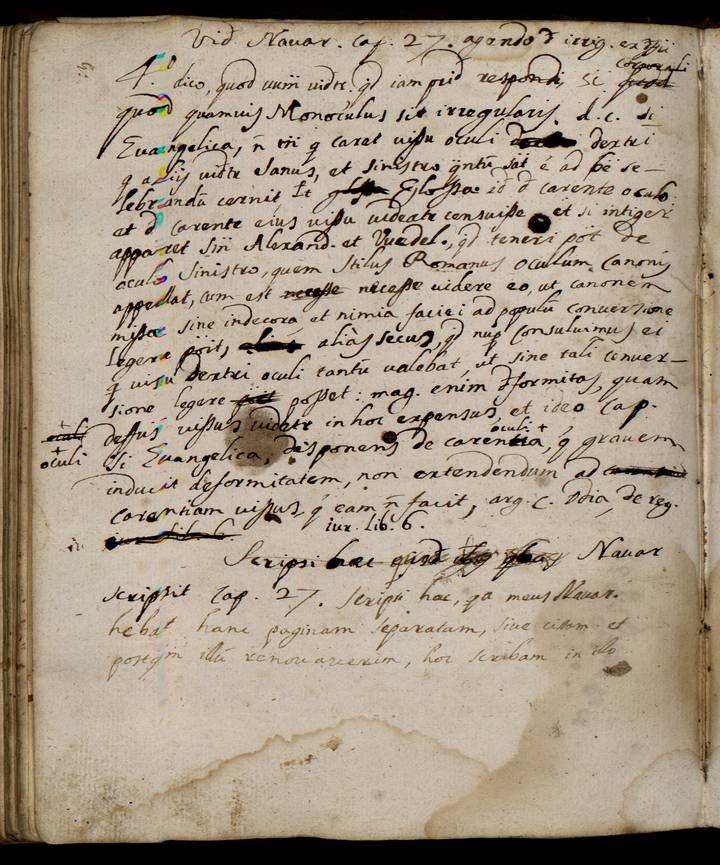 Vid Navar. Cap. 27. agendo d irreg. ex
corporali
4.º dico, quod unū vidtr. qd iam prid respondi, si
quod quamvis Monoculus sit irregularis d. c. si
Evangelica, ñ tñ q caret visu oculi dextri
q aliis vidtr sanus, et sinistro qntū sat ē ad bē se-
lebrandū cernit. Et Glossa id d carente oculo
et d carente eius visu videatr censuisse et si integer
apparet Sic Alexand. et Vuedel., qd teneri pōt de
oculo sinistro, quem Stilus Romanus oculum Canonis
appellat, cum est necesse necesse videre eo, ut canonem
missæ sine indecora et nimia faciei ad populū conversione
legere pōit, aliàs secus, qd nup consuluimus ei
q visu dextri oculi tantū valebat, ut sine tali conver-
sione legere posset: mag. enim dformitas, quam
defus vissus videtr in hoc expensus, et ideo Cap.
oculi +
+ oculi
Si Evangelica, disponens de carentia, q gravem
inducit deformitatem, non extendendum ad
carentiam vissus, q eam ñ facit, arg. C. Odia, de reg.
iur. lib. 6.
Scripsi hæc Navar
scripsit Cap. 27. Scripsi hæc, qa meus Navar.
hebat hanc paginam separatam, sive et
postqm illū renovaverim, hoc scribam in illo